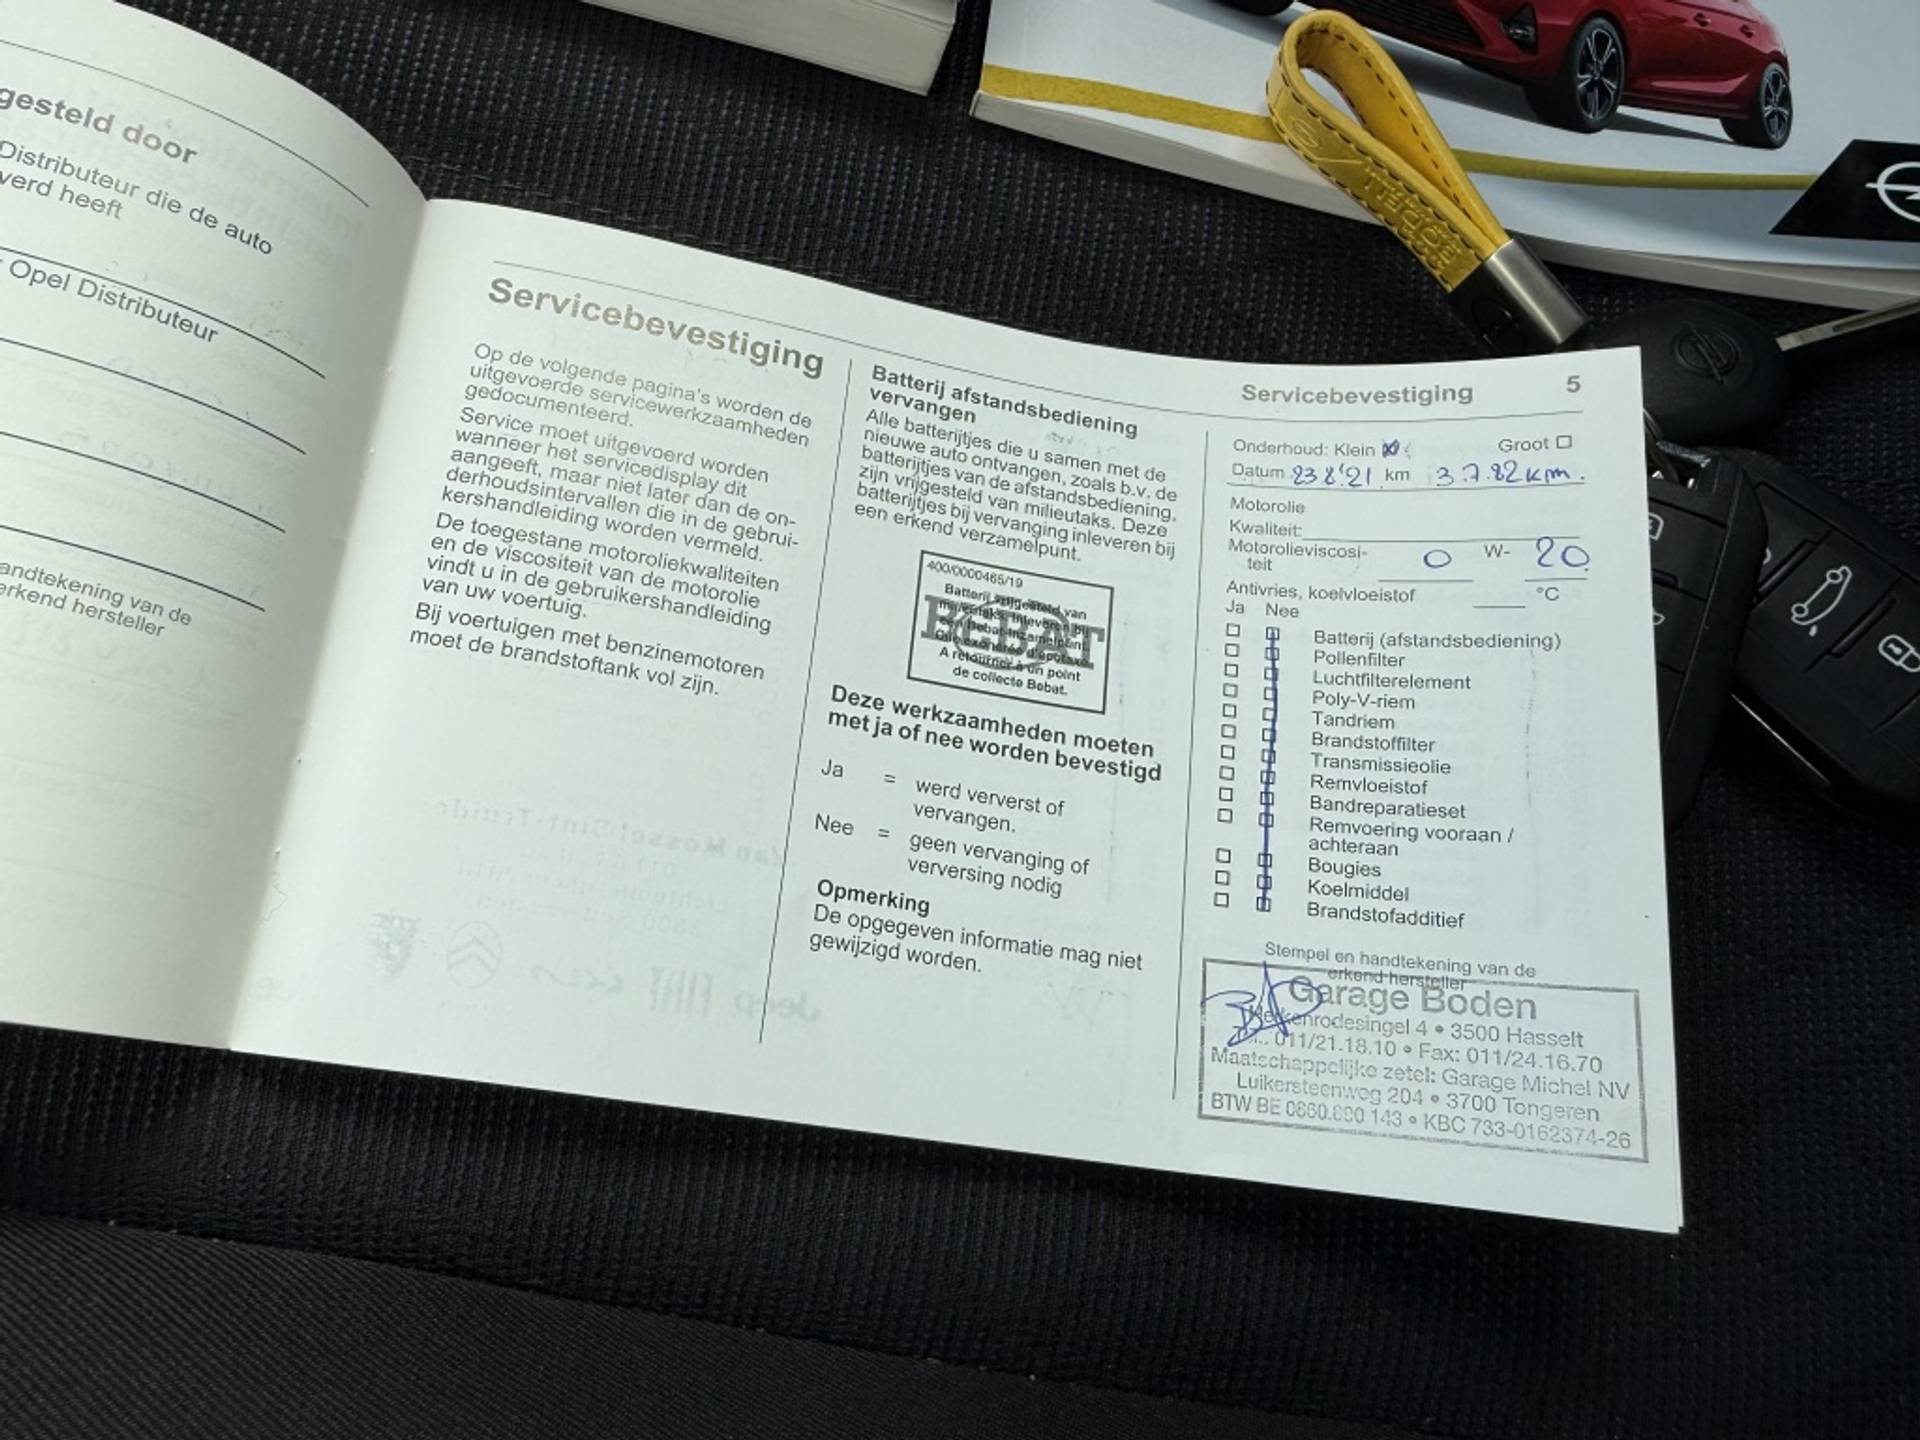 gesteld door
Distributeur die de auto
verd heeft
Opel Distributeur
andtekening van de
erkend hersteller
Servicebevestiging
Op de volgende pagina's worden de
uitgevoerde servicewerkzaamheden
gedocumenteerd.
Service moet uitgevoerd worden
wanneer het servicedisplay dit
aangeeft, maar niet later dan de on-
derhoudsintervallen die in de gebrui-
kershandleiding worden vermeld.
De toegestane motoroliekwaliteiten
en de viscositeit van de motorolie
vindt u in de gebruikershandleiding
van uw voertuig.
Bij voertuigen met benzinemotoren
moet de brandstoftank vol zijn.
Batterij afstandsbediening
vervangen
Alle batterijtjes die u samen met de
nieuwe auto ontvangen, zoals b.v. de
batterijtjes van de afstandsbediening,
zijn vrijgesteld van milieutaks. Deze
batterijtjes bij vervanging inleveren bij
een erkend verzamelpunt.
400/0000465/19
Batterij vrijgesteld van
A retourner à un point
de collecte Bebat.
Deze werkzaamheden moeten
met ja of nee worden bevestigd
Ja = werd ververst of
vervangen.
Nee = geen vervanging of
verversing nodig
Opmerking
De opgegeven informatie mag niet
gewijzigd worden.
Servicebevestiging 5
Onderhoud: Klein Groot
Datum 23 8 '21 km 3.7.82 km.
Motorolie
Kwaliteit:
Motorolieviscosi-
teit 0 W- 20
Antivries, koelvloeistof °C
Ja Nee
Batterij (afstandsbediening)
Pollenfilter
Luchtfilterelement
Poly-V-riem
Tandriem
Brandstoffilter
Transmissieolie
Remvloeistof
Bandreparatieset
Remvoering vooraan /
achteraan
Bougies
Koelmiddel
Brandstofadditief
Stempel en handtekening van de
erkend hersteller
Garage Boden
Herkenrodesingel 4 • 3500 Hasselt
011/21.18.10 • Fax: 011/24.16.70
Maatschappelijke zetel: Garage Michel NV
Luikersteenweg 204 • 3700 Tongeren
BTW BE 0860.880 143 • KBC 733-0162374-26